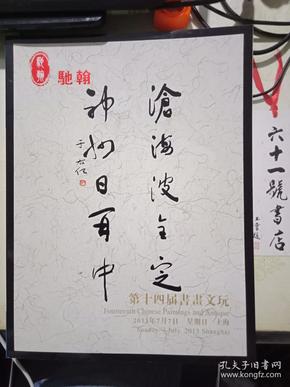 馳翰
馳翰
滄海波全定
神州日再中
于右任
第十四届書畫文玩
Fourteenth Chinese Paintings and Antique
2013年7月7日 星期日 上海
Sunday, 7 July, 2013 Shanghai
六十一號書店
孔夫子旧书网